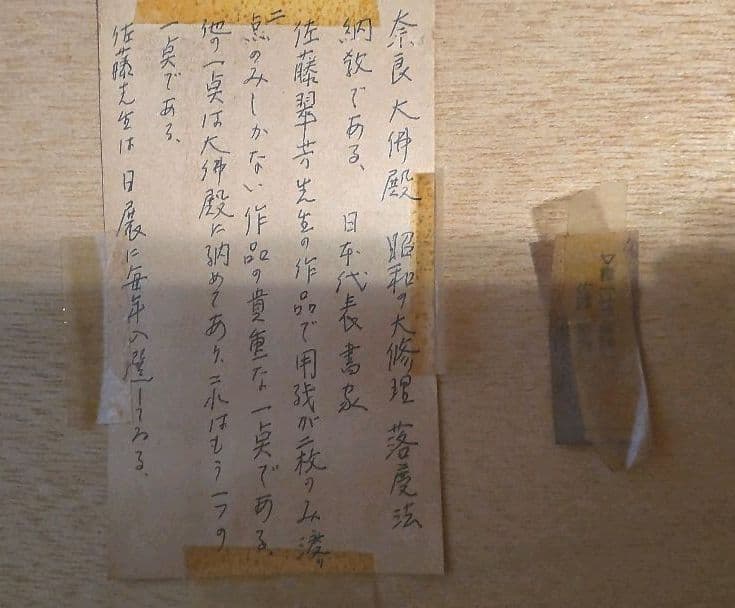 奈良大佛殿 昭和の大修理 落慶法
納教である、日本代表書家
佐藤翠芳先生の作品で用残が二枚のみ
二点のみしかない作品の貴重な一点である、
他の一点は大佛殿に納めてあり、これはもう一つの
一点である、
佐藤先生は日展に毎年入選している、